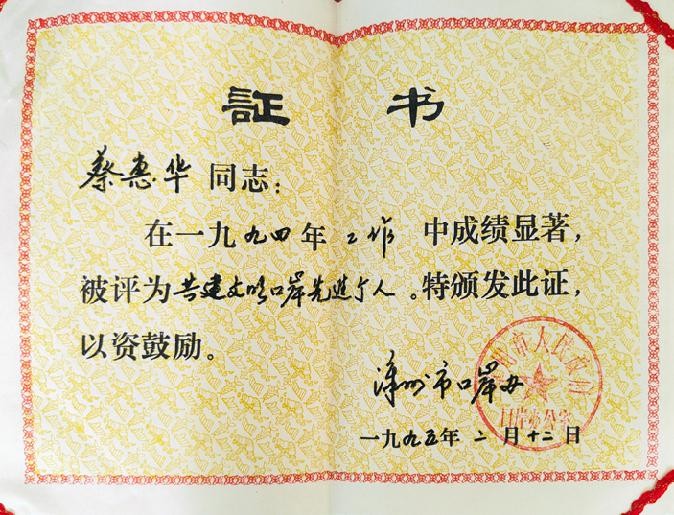 証书
蔡惠华同志：
在一九九四年工作中成绩显著，
被评为共建文明口岸先进个人。特颁发此证，
以资鼓励。
漳州市口岸办
一九九五年二月十二日
漳州市人民政府
口岸办公室